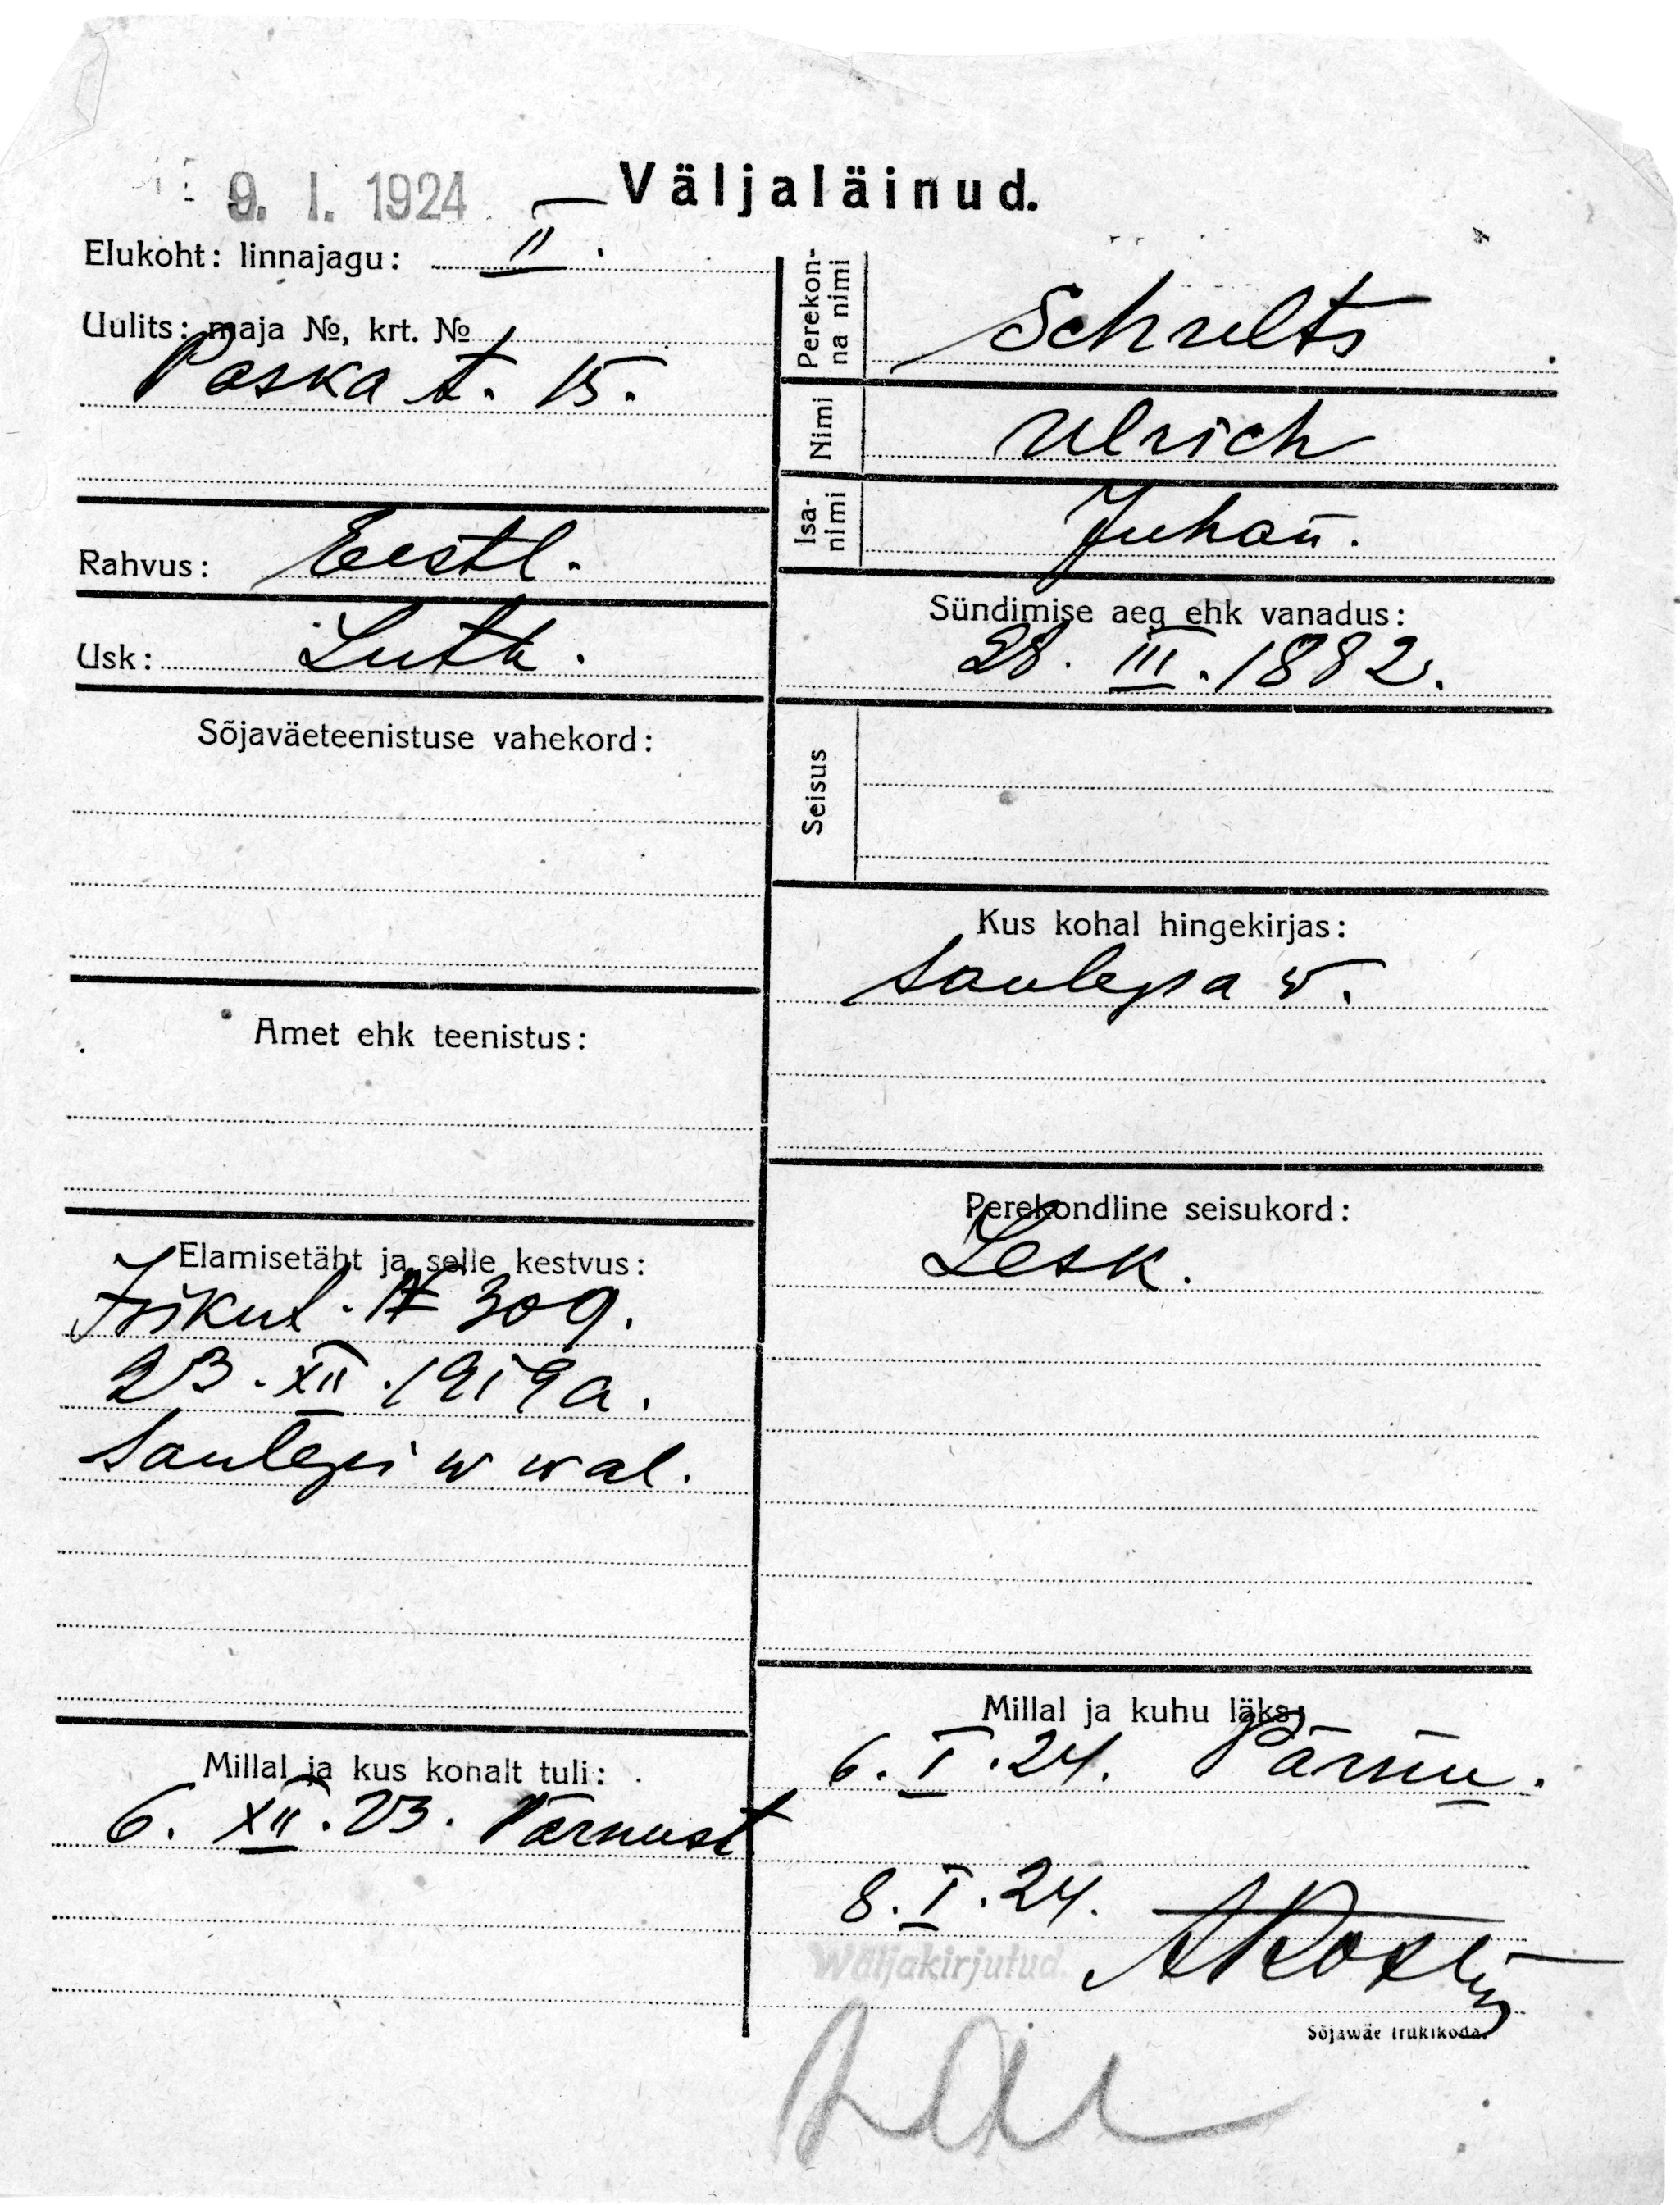 9. I. 1924
Väljaläinud.
Elukoht: linnajagu: II.
Uulits: maja №, krt. №
Poska t. 15.
Rahvus: Eestl.
Usk: Luth.
Sõjaväeteenistuse vahekord:
Amet ehk teenistus:
Elamisetäht ja selle kestvus:
Isikut. № 309.
23. XII. 1919 a.
Saulepi w wal.
Millal ja kus kohalt tuli:
6. XII. 23. Pärnust
Perekonna nimi
Schults
Nimi
Ulrich
Isanimi
Juhan.
Sündimise aeg ehk vanadus:
28. III. 1882.
Seisus
Kus kohal hingekirjas:
Saulepa w.
Perekondline seisukord:
Lesk.
Millal ja kuhu läks:
6. I. 24. Pärnu.
8. I. 24.
Wäljakirjutud.
Sõjawäe trükikoda.